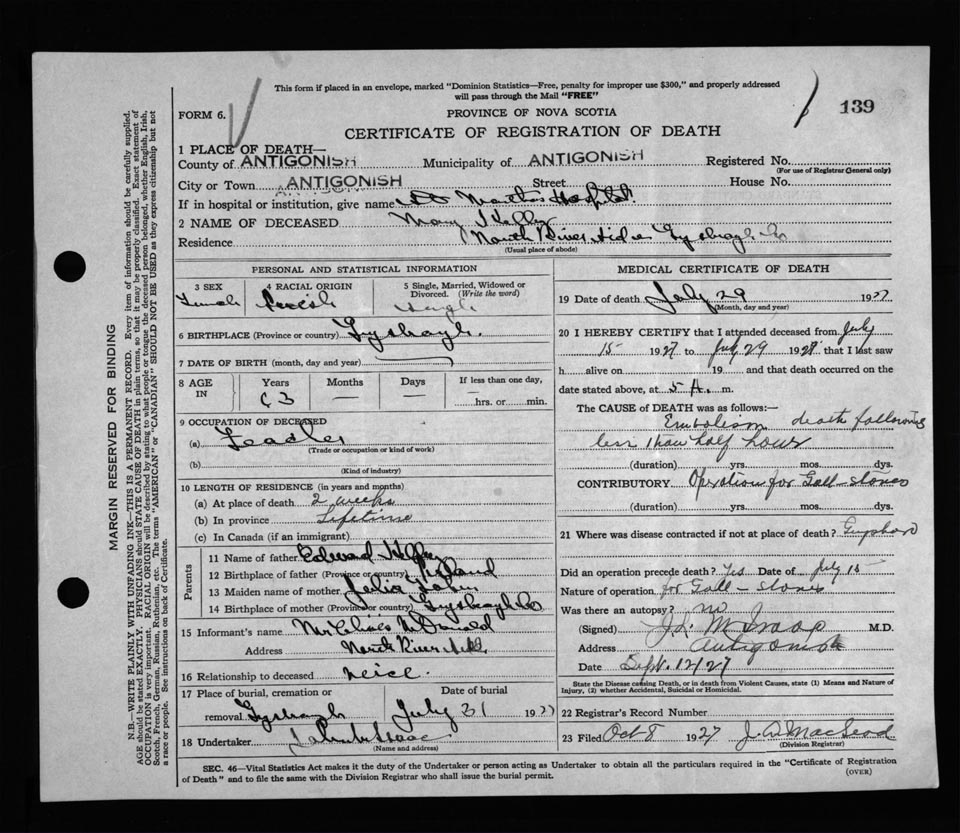 This form if placed in an envelope, marked "Dominion Statistics—Free, penalty for improper use $300," and properly addressed
will pass through the Mail "FREE"
139
FORM 6.
PROVINCE OF NOVA SCOTIA
CERTIFICATE OF REGISTRATION OF DEATH
1 PLACE OF DEATH—
County of ANTIGONISH Municipality of ANTIGONISH Registered No.
(For use of Registrar General only)
City or Town ANTIGONISH Street House No.
If in hospital or institution, give name St Martha's Hospital
2 NAME OF DECEASED Mary
Residence North River Side Guysboro Co
(Usual place of abode)
PERSONAL AND STATISTICAL INFORMATION
3 SEX Female
4 RACIAL ORIGIN
5 Single, Married, Widowed or Divorced. (Write the word) Single
6 BIRTHPLACE (Province or country)
7 DATE OF BIRTH (month, day and year)
8 AGE IN Years 63 Months — Days — If less than one day, —hrs. or —min.
9 OCCUPATION OF DECEASED
(a)
(Trade or occupation or kind of work)
(b)
(Kind of industry)
10 LENGTH OF RESIDENCE (in years and months)
(a) At place of death 2 weeks
(b) In province Lifetime
(c) In Canada (if an immigrant)
Parents
11 Name of father Edward
12 Birthplace of father (Province or country)
13 Maiden name of mother Julia
14 Birthplace of mother (Province or country)
15 Informant's name McDonald
Address North River
16 Relationship to deceased neice
17 Place of burial, cremation or removal Date of burial July 31 1927
18 Undertaker
(Name and address)
MEDICAL CERTIFICATE OF DEATH
19 Date of death July 29 1927
(Month, day and year)
20 I HEREBY CERTIFY that I attended deceased from July
15 1927 to July 29 1927 that I last saw
h alive on 19 and that death occurred on the
date stated above, at 5 A. m.
The CAUSE OF DEATH was as follows:—
Embolism death following
less than half hour
(duration) yrs. mos. dys.
CONTRIBUTORY Operation for Gall-stones
(duration) yrs. mos. dys.
21 Where was disease contracted if not at place of death?
Did an operation precede death? Yes Date of July 15
Nature of operation for Gall-stones
Was there an autopsy? no
(Signed) M.D.
Address Antigonish
Date Sept. 12/27
State the Disease causing Death, or in death from Violent Causes, state (1) Means and Nature of
Injury, (2) whether Accidental, Suicidal or Homicidal.
22 Registrar's Record Number
23 Filed Oct 8 1927 J. D. MacLeod
(Division Registrar)
SEC. 46—Vital Statistics Act makes it the duty of the Undertaker or person acting as Undertaker to obtain all the particulars required in the "Certificate of Registration
of Death" and to file the same with the Division Registrar who shall issue the burial permit.
(OVER)
MARGIN RESERVED FOR BINDING
N.B.—WRITE PLAINLY WITH UNFADING INK—THIS IS A PERMANENT RECORD. Every item of information should be carefully supplied.
AGE should be stated EXACTLY. PHYSICIANS should STATE CAUSE OF DEATH in plain terms, so that it may be properly classified. Exact statement of
OCCUPATION is very important. RACIAL ORIGIN will be described by stating to what people or tongue the deceased person belonged, whether English, Irish,
Scotch, French, German, Russian, Ruthenian, etc. The terms "AMERICAN" or "CANADIAN" SHOULD NOT BE USED as they express citizenship but not
a race or people. See instructions on back of Certificate.